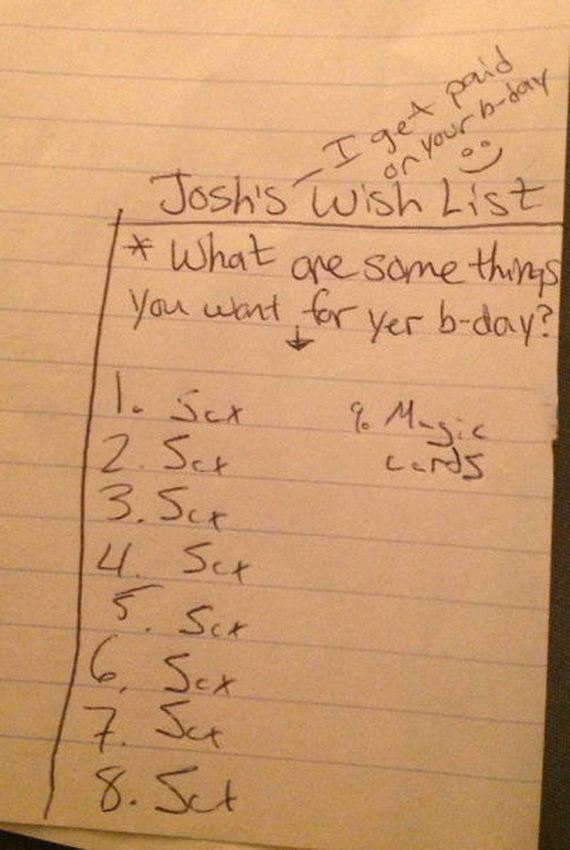 I get paid
on your b-day
Josh's Wish List
* What are some things
you want for yer b-day?
1. Sex
2. Sex
3. Sex
4. Sex
5. Sex
6. Sex
7. Sex
8. Sex
9. Magic
cards